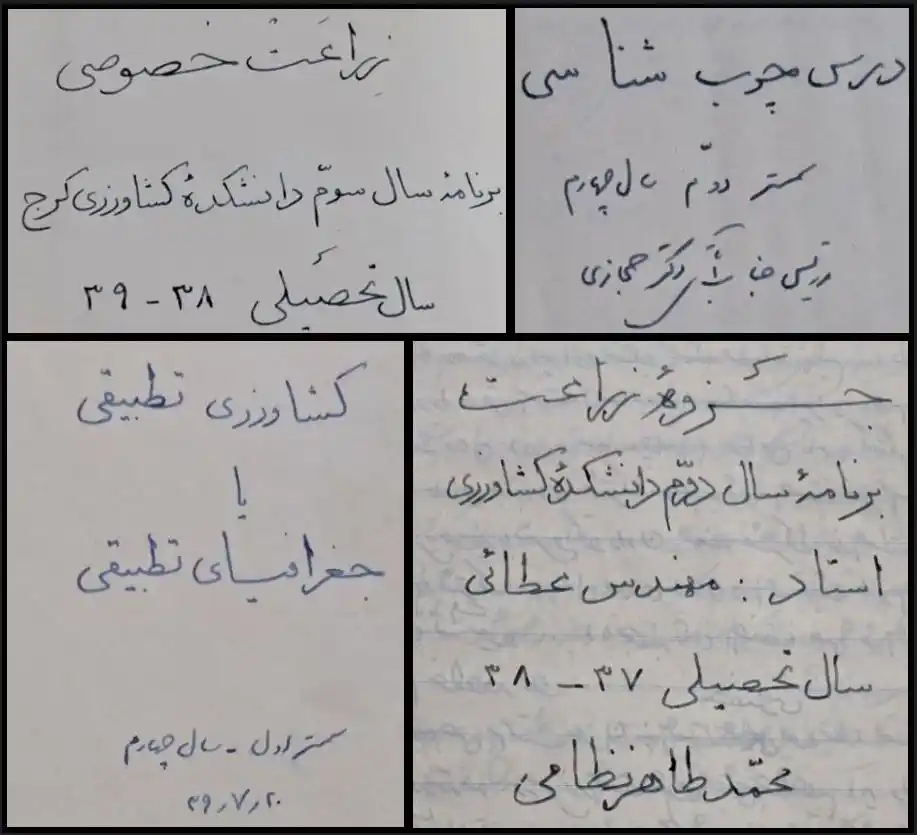 زراعت خصوصی
برنامهٔ سال سوّم دانشکدهٔ کشاورزی کرج
سال تحصیلی ۳۸ - ۳۹
درس چوب شناسی
سمستر دوّم سال چهارم
دکتر حجازی
کشاورزی تطبیقی
یا
جغرافیای تطبیقی
سمستر اول - سال چهارم
۳۹٫۷٫۲۰
جزوهٔ زراعت
برنامهٔ سال دوّم دانشکدهٔ کشاورزی
استاد : مهندس عطائی
سال تحصیلی ۳۷ - ۳۸
محمّد طاهر نظامی